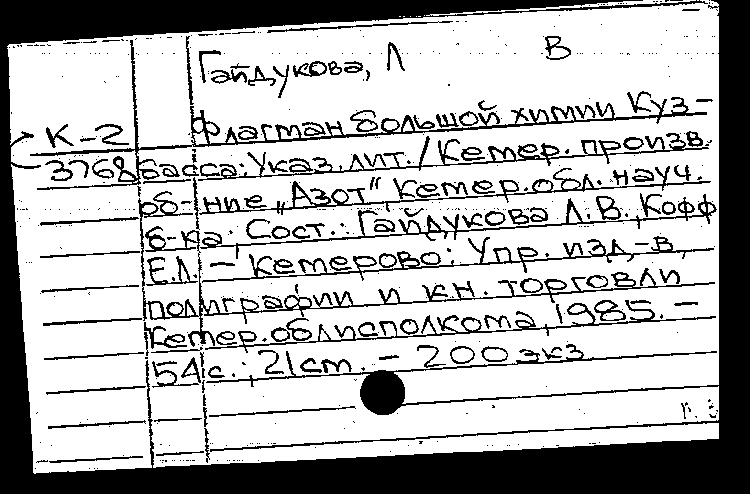 Гайдукова, Л В
К-2 Флагман большой химии Куз-
3768 басса: Указ. лит./Кемер. произв.
об-ние „Азот", Кемер. обл. науч.
б-ка; Сост.: Гайдукова Л.В., Кофф
Е.Л. - Кемерово: Упр. изд-в,
полиграфии и кн. торговли
Кемер. облисполкома, 1985. -
54 с.; 21 cm. - 200 экз